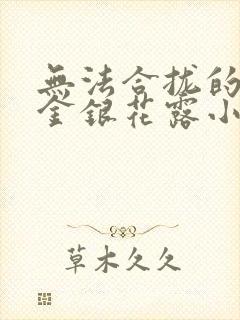 無法合拢的
金銀花露小
草木久久